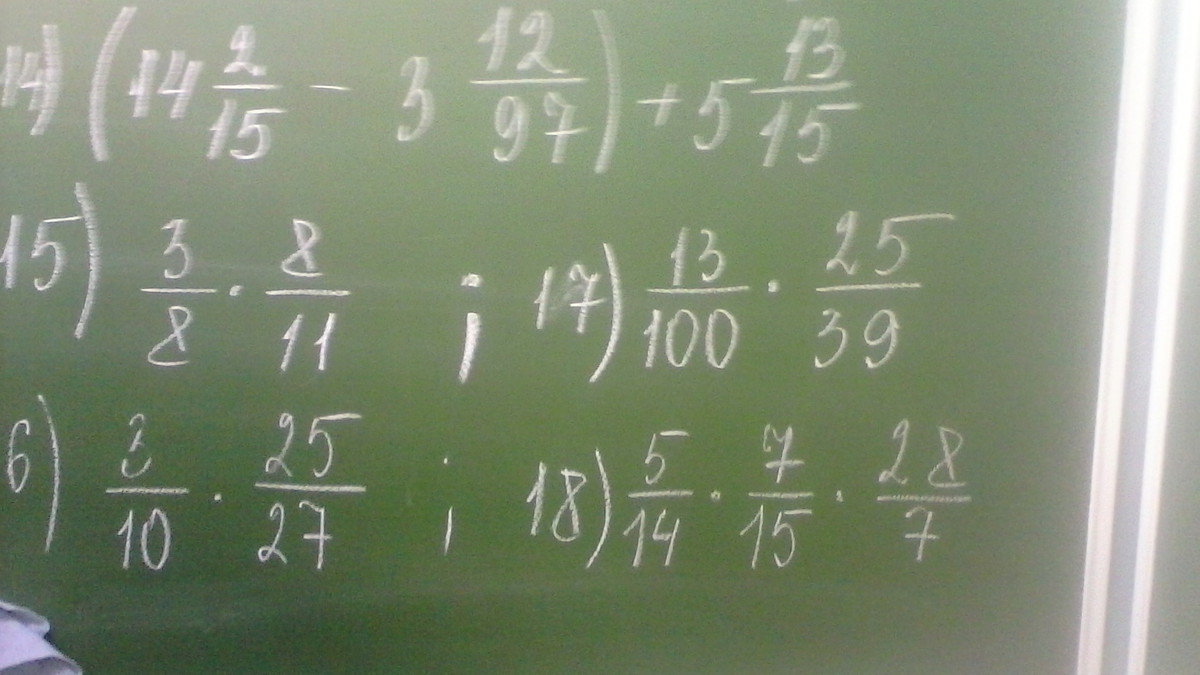 14) (14 2/15 - 3 12/97) + 5 13/15
15) 3/8 · 8/11 ; 17) 13/100 · 25/39
6) 3/10 · 25/27 ; 18) 5/14 · 7/15 · 28/7